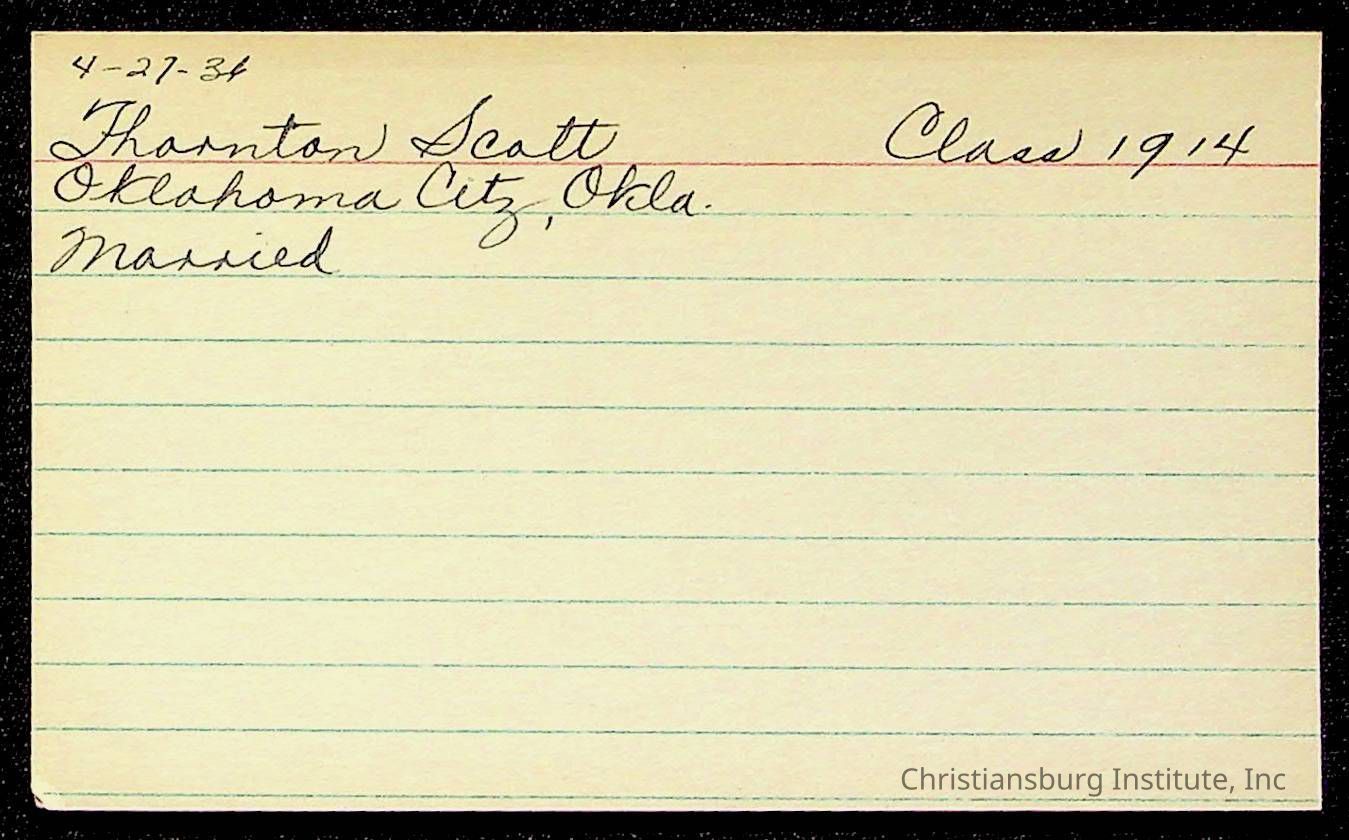 4-27-36
Thornton Scott Class 1914
Oklahoma City, Okla.
Married
Christiansburg Institute, Inc